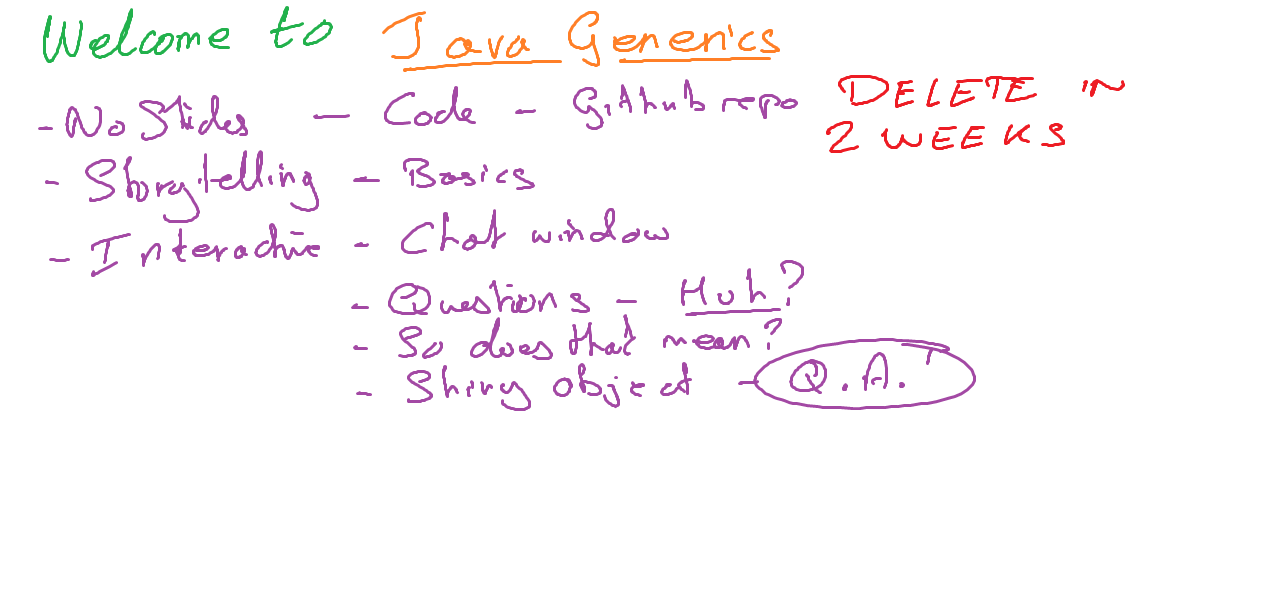 Welcome to Java Generics
- No Slides - Code - Github repo
DELETE IN
2 WEEKS
- Storytelling - Basics
- Interactive - Chat window
- Questions - Huh?
- So does that mean?
- Shiny object - Q.A.